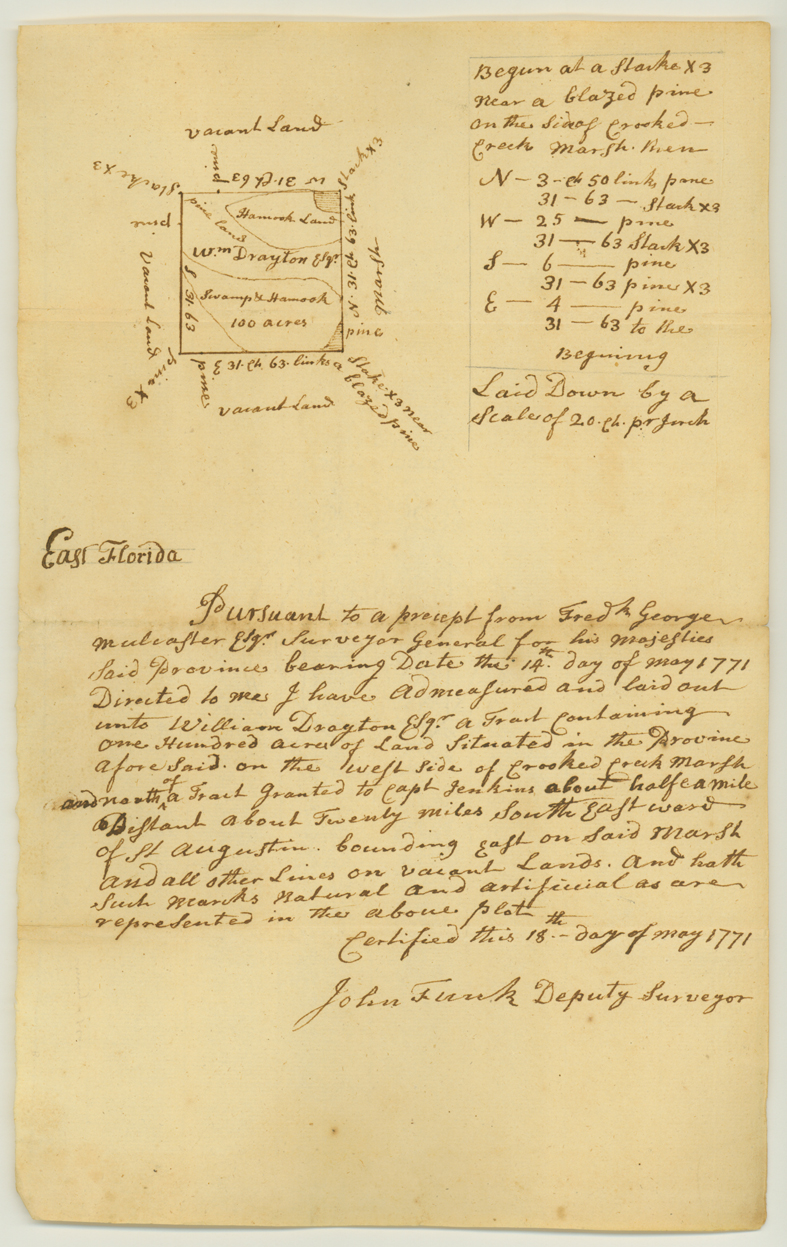 vacant Land
Stacke X3
pine
W 31 Ch 63
Stack X3
pine
pine land
Hamock Land
Wm Drayton Esqr
N. 31. Ch 63. link
Marsh
Vacant Land
S 31 63
Swamp & Hamock
100 acres
pine
E 31. Ch. 63. links
pine X3
pine
vacant Land
Stake X3 near
a blazed pine
Begun at a Stacke X3
Near a blazed pine
on the Side of Crooked —
Creek Marsh. then
N — 3 - Ch 50 links pine
31 - 63 — Stack X3
W — 25 — pine
31 — 63 Stack X3
S — 6 — pine
31 — 63 pine X3
E — 4 — pine
31 — 63 to the
Begining
Laid Down by a
Scale of 20. Ch. pr Inch
East Florida
Pursuant to a precept from Fredk George
Mulcaster Esqr Surveyor General for his Majesties
Said Province bearing Date the 14th day of May 1771
Directed to me I have Admeasured and laid out
unto William Drayton Esqr a Tract Containing
one Hundred acres of Land Situated in the Provine
afore Said. on the west Side of Crooked Creek Marsh
and north of a Tract Granted to Capt Jenkins about half a mile
Distant about Twenty miles South Eastward
of St Augustin. bounding East on Said Marsh
and all other Lines on vacant Lands. And hath
Such Marks Natural and artificial as are
represented in the above plat
Certified this 18th - day of May 1771
John Funk Deputy Surveyor